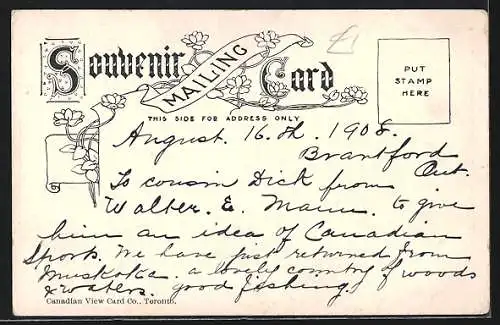 Souvenir Card
MAILING
PUT
STAMP
HERE
THIS SIDE FOR ADDRESS ONLY
August. 16.th. 1908.
Brantford
Ont.
To cousin Dick from
Walter. E. Mann. to give
him an idea of Canadian
Sports. We have just returned from
Muskoka. a lovely country of woods
& waters. good fishing.
Canadian View Card Co., Toronto.